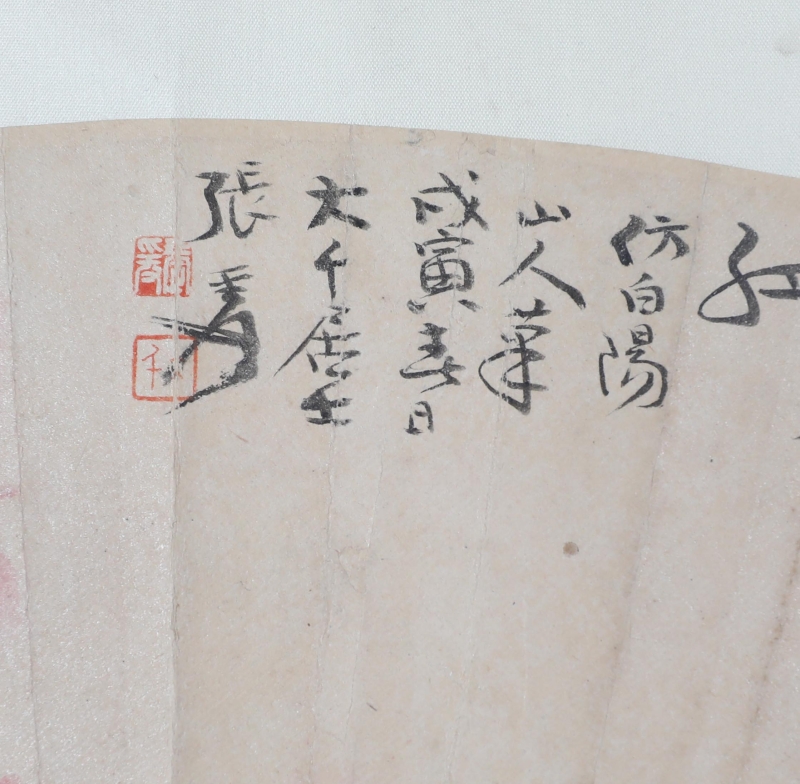 紅
仿白陽
山人筆
戊寅春日
大千居士
張爰
張爰
大千